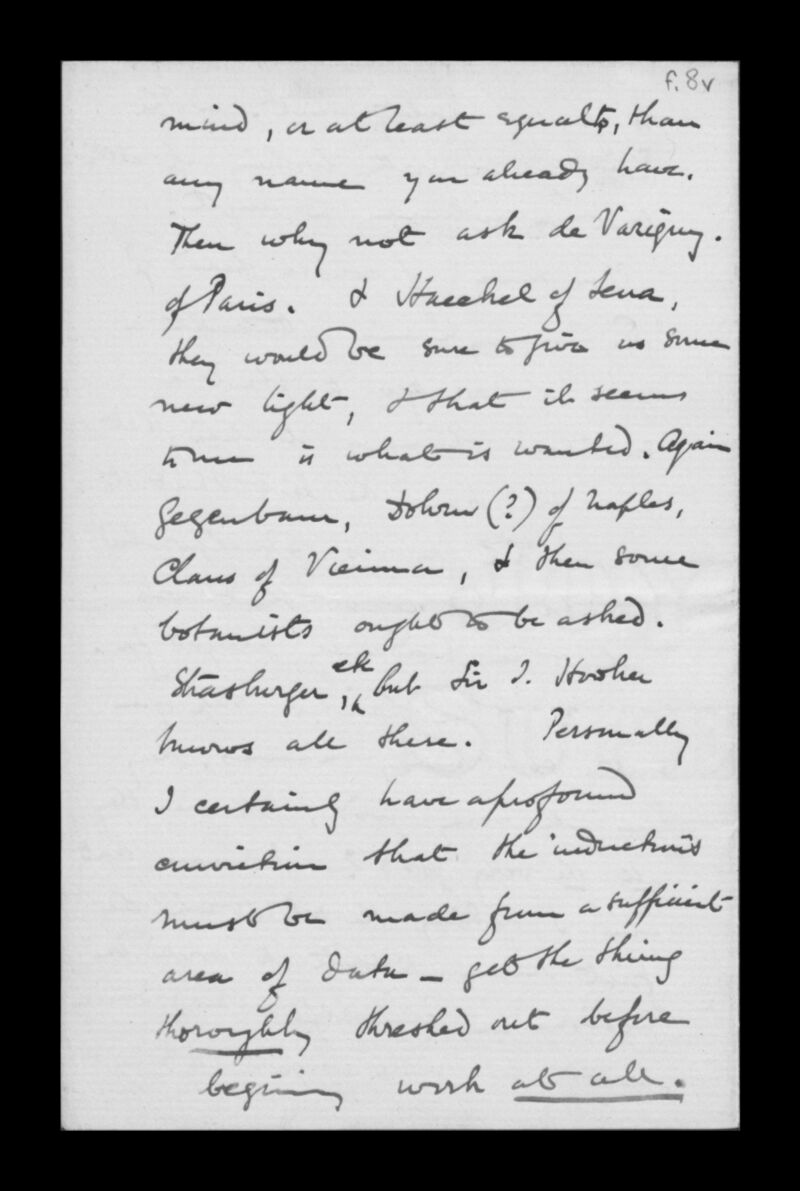 f. 8v
mind, or at least equal to, than
any name you already have.
Then why not ask de Varigny.
of Paris. & Haeckel of Jena,
they would be sure to give us some
new light, & that it seems
to me is what is wanted. Again
Gegenbaur, Dohrn (?) of Naples,
Claus of Vienna, & then some
botanists ought to be asked.
Strasburger, etc but Sir J. Hooker
knows all these. Personally
I certainly have a profound
conviction that the inductions
must be made from a sufficient
area of data – get the thing
thoroughly threshed out before
begining work at all.